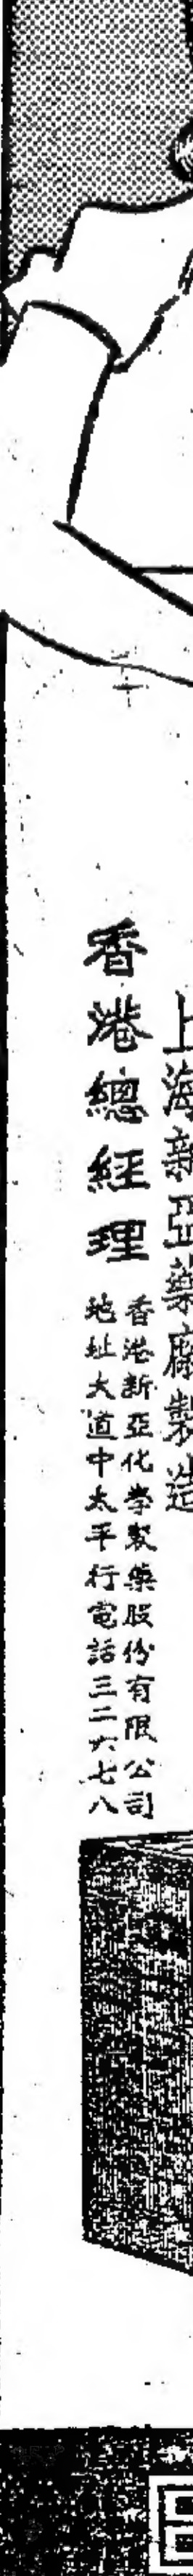 上海新亞藥廠製造
香港總經理
香港新亞化學製藥股份有限公司
地址大道中太平行電話三二六七八